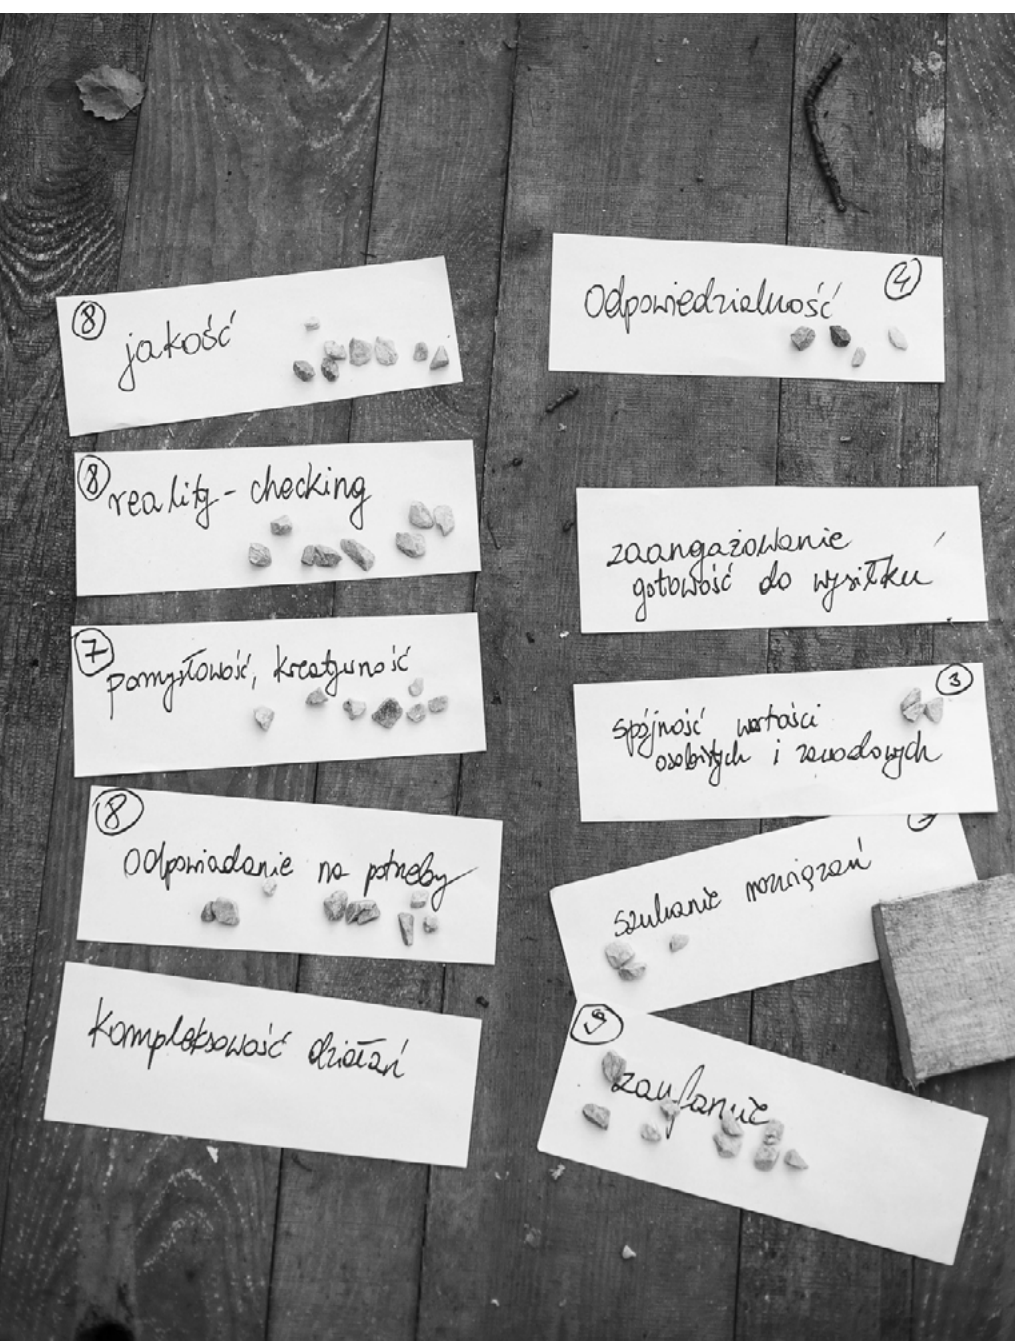 8
jakość
8
reality-checking
7
pomysłowość, kreatywność
8
Odpowiadanie na potrzeby
Kompleksowość działań
Odpowiedzialność
4
zaangażowanie
gotowość do wysiłku
3
spójność wartości
osobistych i zawodowych
szukanie rozwiązań
9
zaufanie